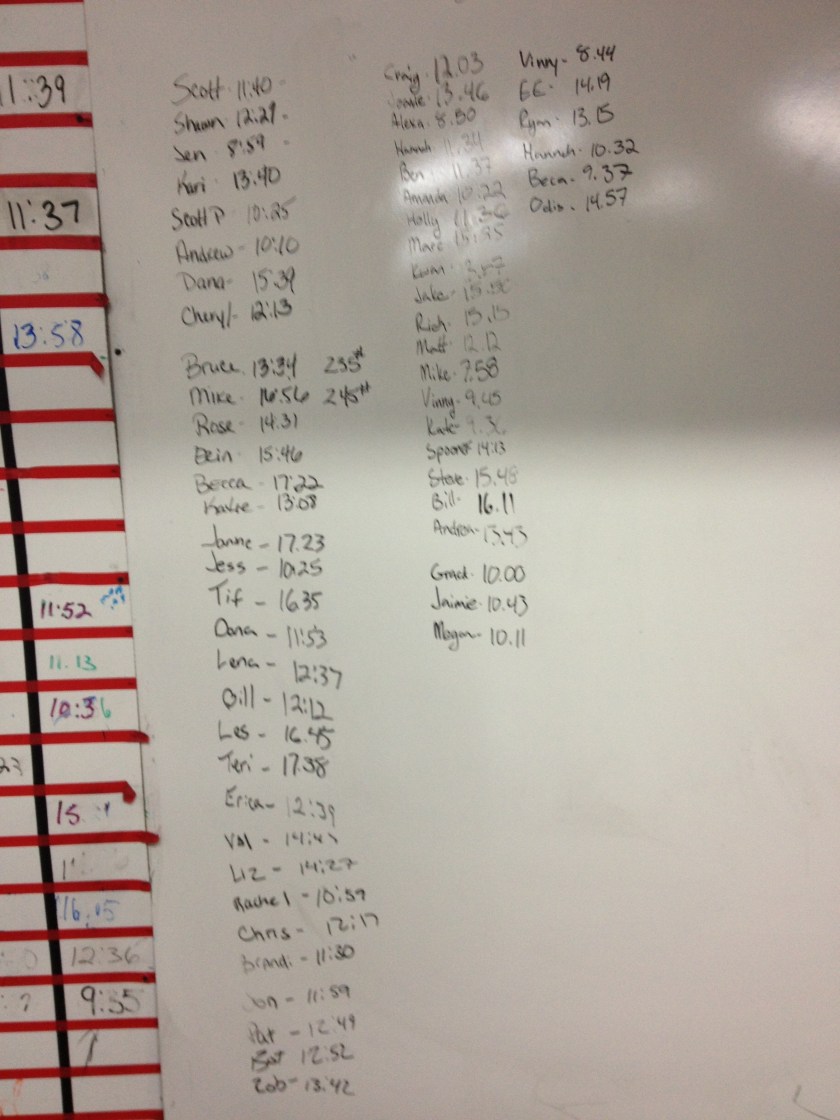 11:39
11:37
13:58
11:52
11.13
10:36
15
16:15
12:36
9:35
Scott - 11:40
Shawn 12:29 -
Jen 8:59 -
Kari 13:40
Scott P 10:25
Andrew - 10:10
Dana - 15:39
Cheryl - 12:13
Bruce 13:34 235#
Mike - 16:56 245#
Rose - 14:31
Erin - 15:46
Becca - 17:22
Katie - 13:08
Janne - 17.23
Jess - 10:25
Tif - 16.35
Dana - 11:53
Lena - 12:37
Bill - 12:12
Les - 16.45
Teri - 17.38
Erica - 12:39
Val - 14:4
Liz - 14:27
Rachel - 10:59
Chris - 12:17
Brandi - 11:30
Jon - 11:59
Pat - 12:49
Bat 12:52
Rob - 13:42
Craig - 12.03
13.46
Alexa - 8.50
Hannah 11.34
Ben 11.37
Amanda 10.22
Holly 11.36
Marc 15:35
Keran
Jake - 15.
Rich - 13.15
Matt - 12.12
Mike - 7.58
Vinny - 9.45
Kate - 9.36
Spoons 14:13
Steve - 15.48
Bill - 16.11
Andrea - 13.43
10.00
Jaimie - 10.43
Megan - 10.11
Vinny - 8.44
EE - 14.19
Ryan - 13.15
Hannah - 10.32
Beca - 9.37
Odis - 14.57